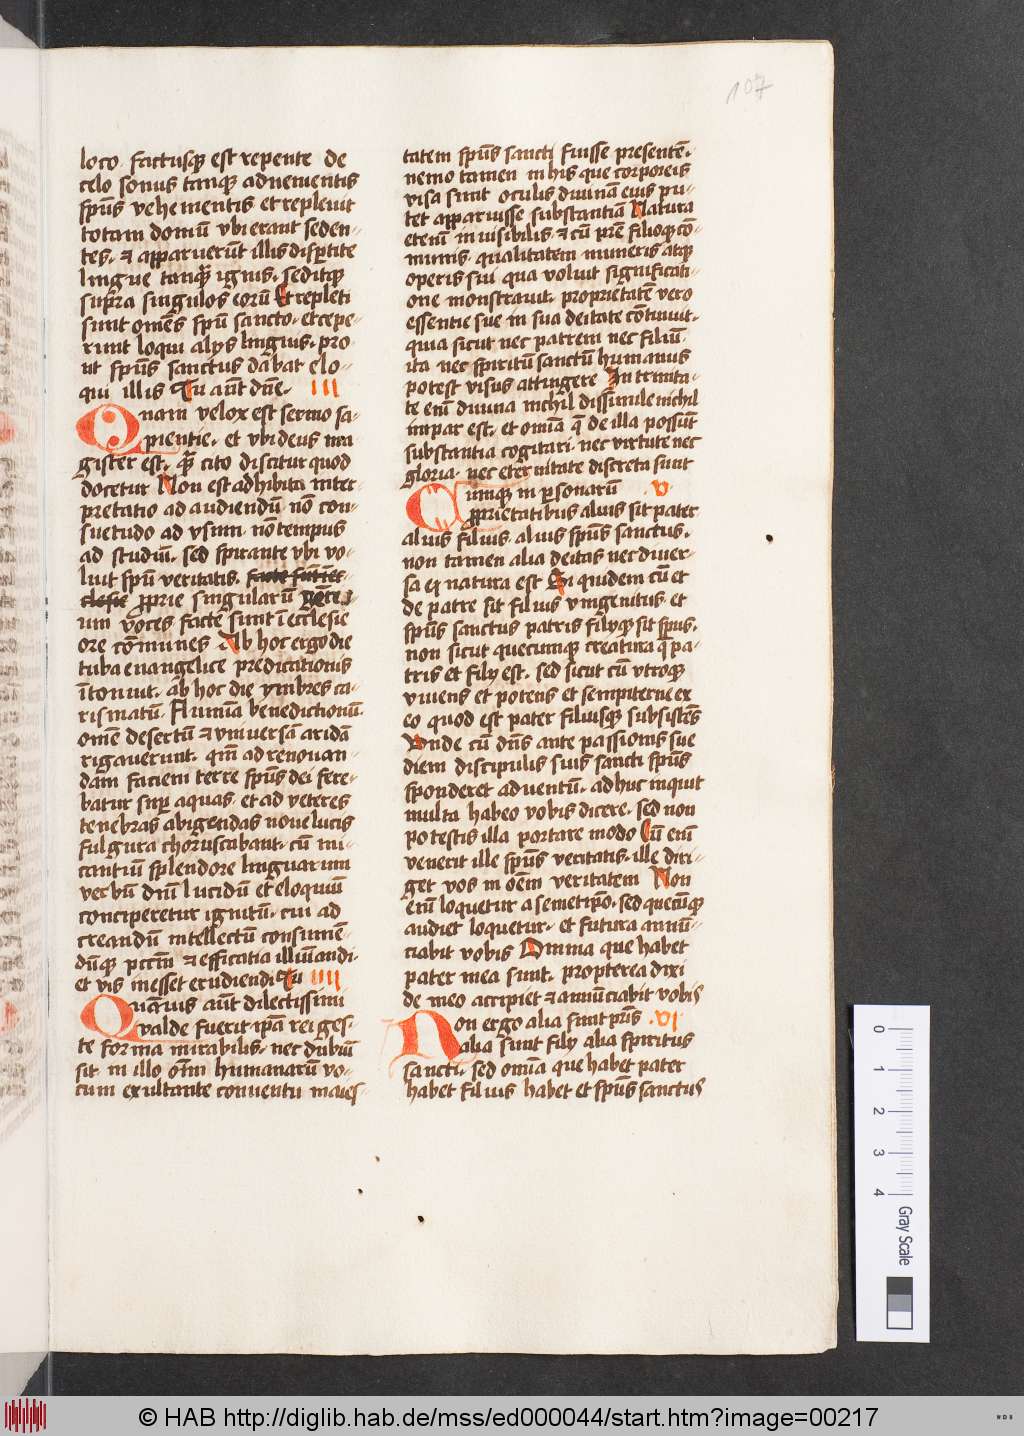 107
loco. factusq̨ est repente de
celo sonus tanq̨ advenientis
sp̄us vehementis et replevit
totam domū vbi erant seden-
tes. & apparuerūt illis disp̄tite
lingue tanq̄ ignis. seditq̨
supra singulos eorū Et repleti
sunt om̄es sp̄u sancto. et cepe-
runt loqui alijs linguis. pro-
ut sp̄us sanctus dabat elo-
qui illis Tu aūt dn̄e. III
Quam velox est sermo sa-
pientie. et vbi deus ma
gister est. q̄ cito discitur quod
docetur Non est adhibita inter-
pretatio ad audiendū nō con-
suetudo ad vsum. nō tempus
ad studiū. sed spirante vbi vo-
luit sp̄u veritatis.
p̄prie singularū gente
um voces facte sunt ī ecclesie
ore cōmunes Ab hoc ergo die
tuba evangelice predicationis
ītonuit. ab hoc die ymbres ca-
rismatū. flumīa benedictionū.
om̄e desertū & vniversā aridā
rigaverunt. qm̄ ad renovan-
dam faciem terre sp̄us dei fere-
batur sup̄ aquas. et ad veteres
tenebras abigendas nove lucis
fulgura choruscabant. cū mi-
cantiū splendore linguarum
verbū dn̄i lucidū et eloquiū
conciperetur ignitū. cui ad
creandū intellectū consumē-
dūq̨ pctm̄ & efficatia illuīandi.
et vis inesset erudiendi Tu IIII
Quamvis aūt dilectissimi
valde fuerit ip̄a rei ges-
te forma mirabilis. nec dubiū
sit. in illo om̄ humanarū vo-
cum exultante conventu maies-
tatem sp̄us sancti fuisse presentē.
nemo tamen in his que corporeis
visa sunt oculis divinam eius pu-
tet apparuisse substantiā Natura
etenī invisibilis & cū pr̄e filioq̨ cō-
munis. qualitatem muneris atq̨
operis sui qua voluit significati-
one monstravit. proprietatē vero
essentie sue in sua deitate cōtinuit.
quia sicut nec patrem nec filiū.
ita nec spiritū sanctū humanus
potest visus attingere In trinita-
te enī divina nichil dissimile nichil
impar est. et omīa q̄ de illa possūt
substantia cogitari. nec virtute nec
gloria. nec eternitate discreta sunt
Cumq̨ in p̄sonarū v
p̄prietatibus alius sit pater
alius filius. alius sp̄us sanctus.
non tamen alia deitas nec diver-
sa ē natura est Si quidem cū et
de patre sit filius vnigenitus. et
sp̄us sanctus patris filijq̨ sit sp̄us.
non sicut quecumq̨ creatura q̄ pa-
tris et filij est. sed sicut cū vtroq̨
vivens et potens et sempiterne ex
eo quod est pater filiusq̨ subsistēs
Vnde cū dn̄s ante passionis sue
diem discipulis suis sancti sp̄us
sponderet adventū. adhuc inquit
multa habeo vobis dicere. sed non
potestis illa portare modo Cū enī
venerit ille sp̄us veritatis. ille diri-
get vos in oēm veritatem Non
enī loquetur a semetip̄o. sed quecūq̨
audiet loquetur. et futura annū-
ciabit vobis Omnia que habet
pater mea sunt. propterea dixi
de meo accipiet & annūciabit vobis
Non ergo alia sunt p̄ris .vi
alia sunt filij alia spiritus
sancti. sed omīa que habet pater
habet filius habet et sp̄us sanctus
0 1 2 3 4 Gray Scale
© HAB http://diglib.hab.de/mss/ed000044/start.htm?image=00217